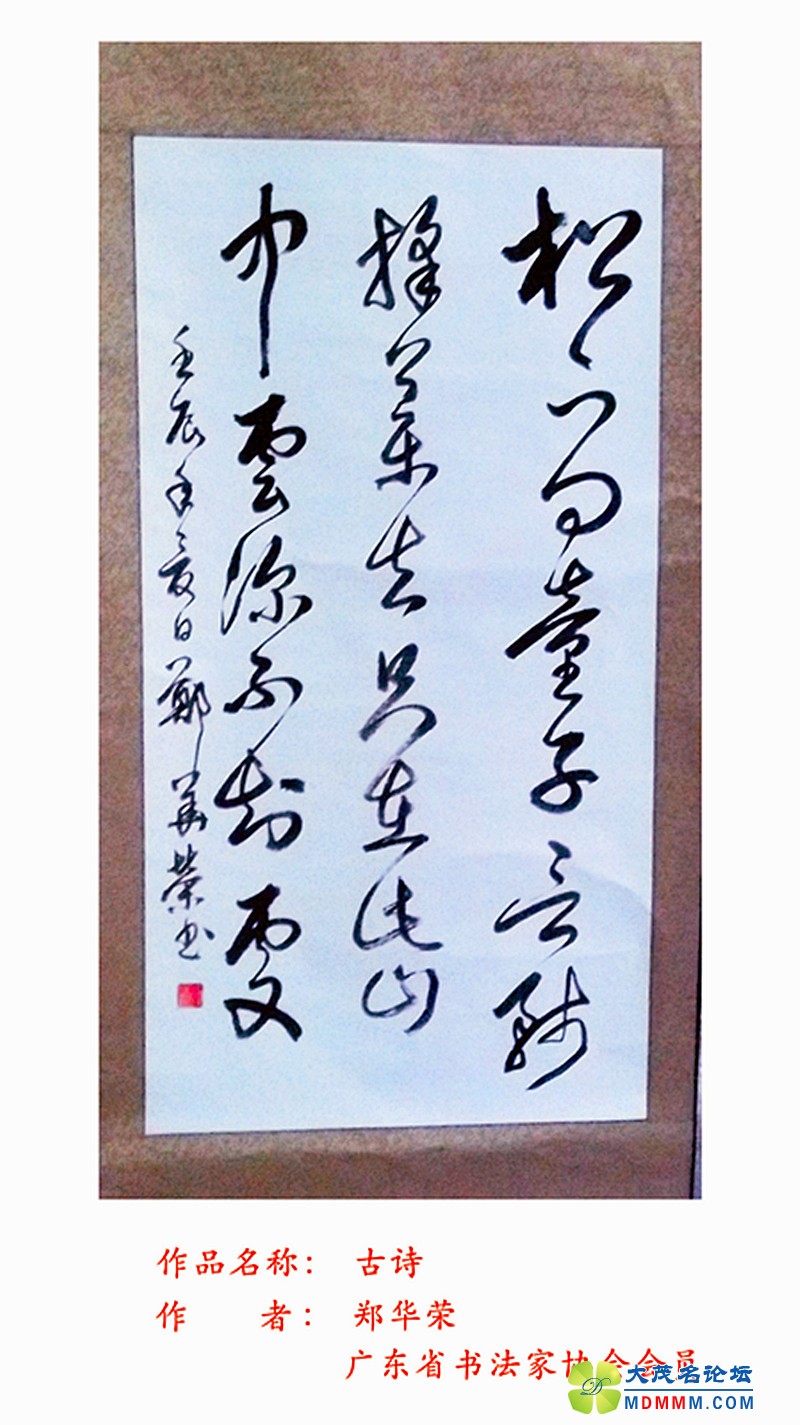 松下問童子言師
採藥去只在此山
中雲深不知處
壬辰年夏日鄭華榮书
作品名称： 古诗
作 者： 郑华荣
广东省书法家协会会员
大茂名论坛
MDMMM.COM